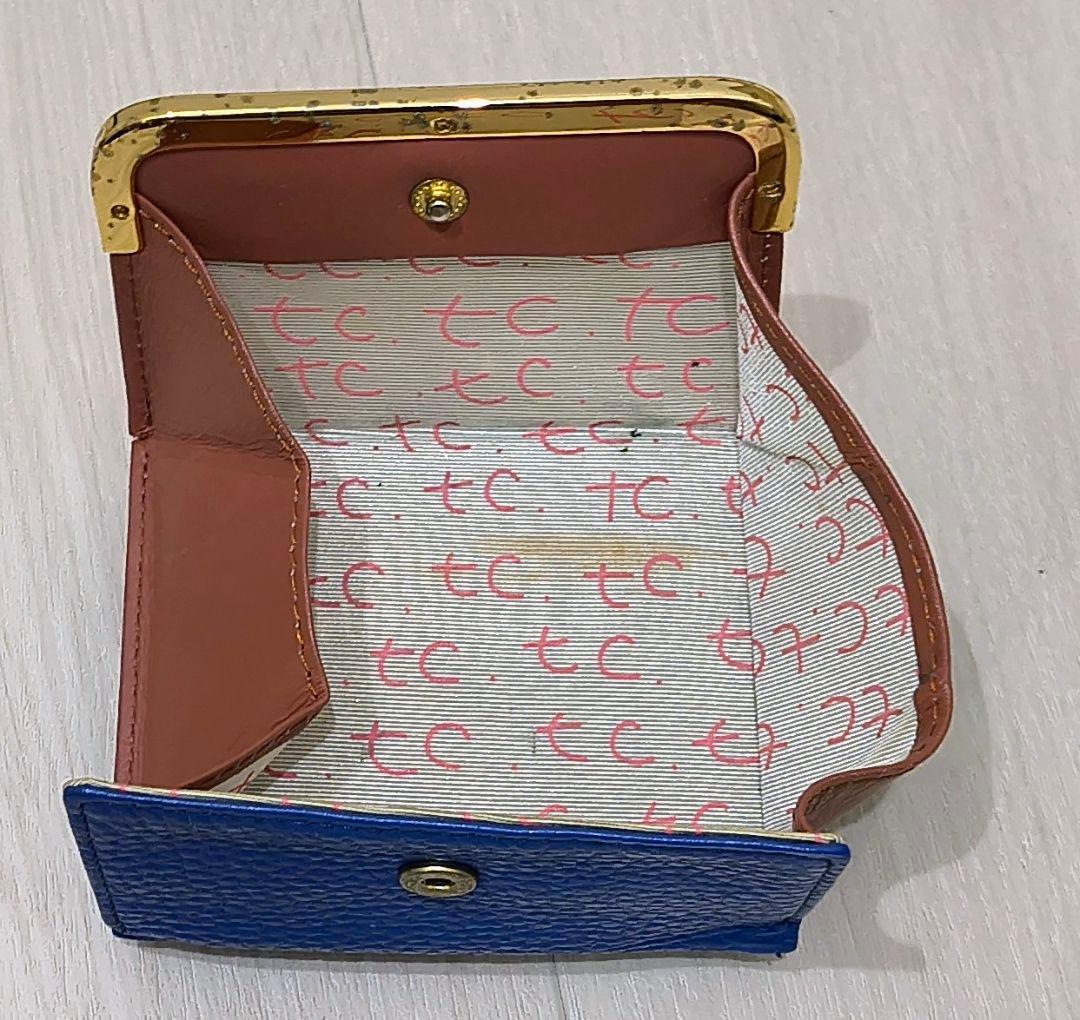 tc. tc. tc.
tc. tc. tc
tc. tc. tc
c. tc. tc. t
tc. tc. tc. t
tc. tc. tc. t
tc. tc. t
tc. tc. t